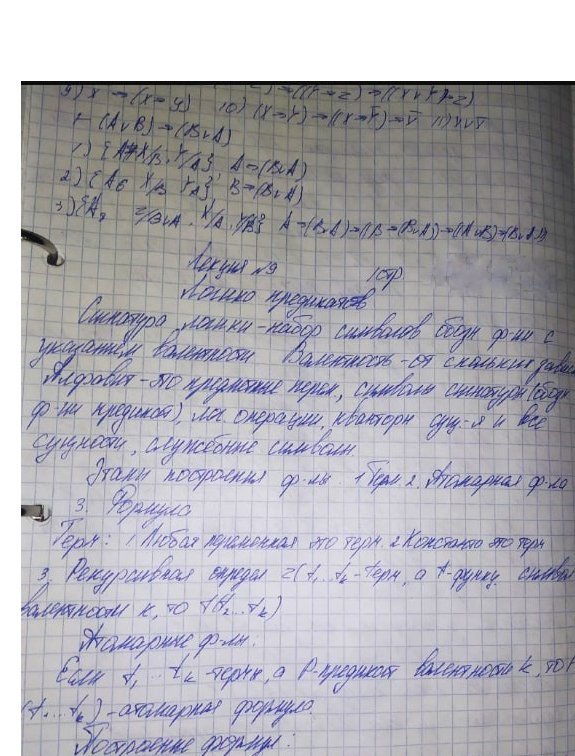 9) X → (X → Y) 10) (X → Y) → ((X → Ȳ) → X̄ 11) X∨X̄
⊢ (A∨B) → (B∨A)
1) {A7 X/B, Y/A}, A → (B∨A)
2) {A6 X/B Y/A}, B → (B∨A)
3) {A8 Z/B∨A, X/A, Y/B} A → (B∨A) → ((B → (B∨A)) → ((A∨B) → (B∨A)))
Лекция №9 1стр
Логика предикатов
Сигнатура логики - набор символов обозн ф-ии с
указанием валентности Валентность - от скольки завис
Алфавит - это предметные перем, символы сигнатуры (обозн
ф-ии предикат), лог. операции, кванторы сущ-я и все
сущности, служебные символы.
Этапы построения ф-лы. 1 Терм 2. Атомарная ф-ла
3. Формула
Терм: 1. Любая переменная это терм. 2 Константа это терм
3. Рекурсивная определ t1...tk - терм, а f - функц. символ
валентности k, то f(t1...tk)
Атомарные ф-лы:
Если t1...tk - термы, а P - предикат валентности k, то P
(t1...tk) - атомарная формула.
Построение формул: